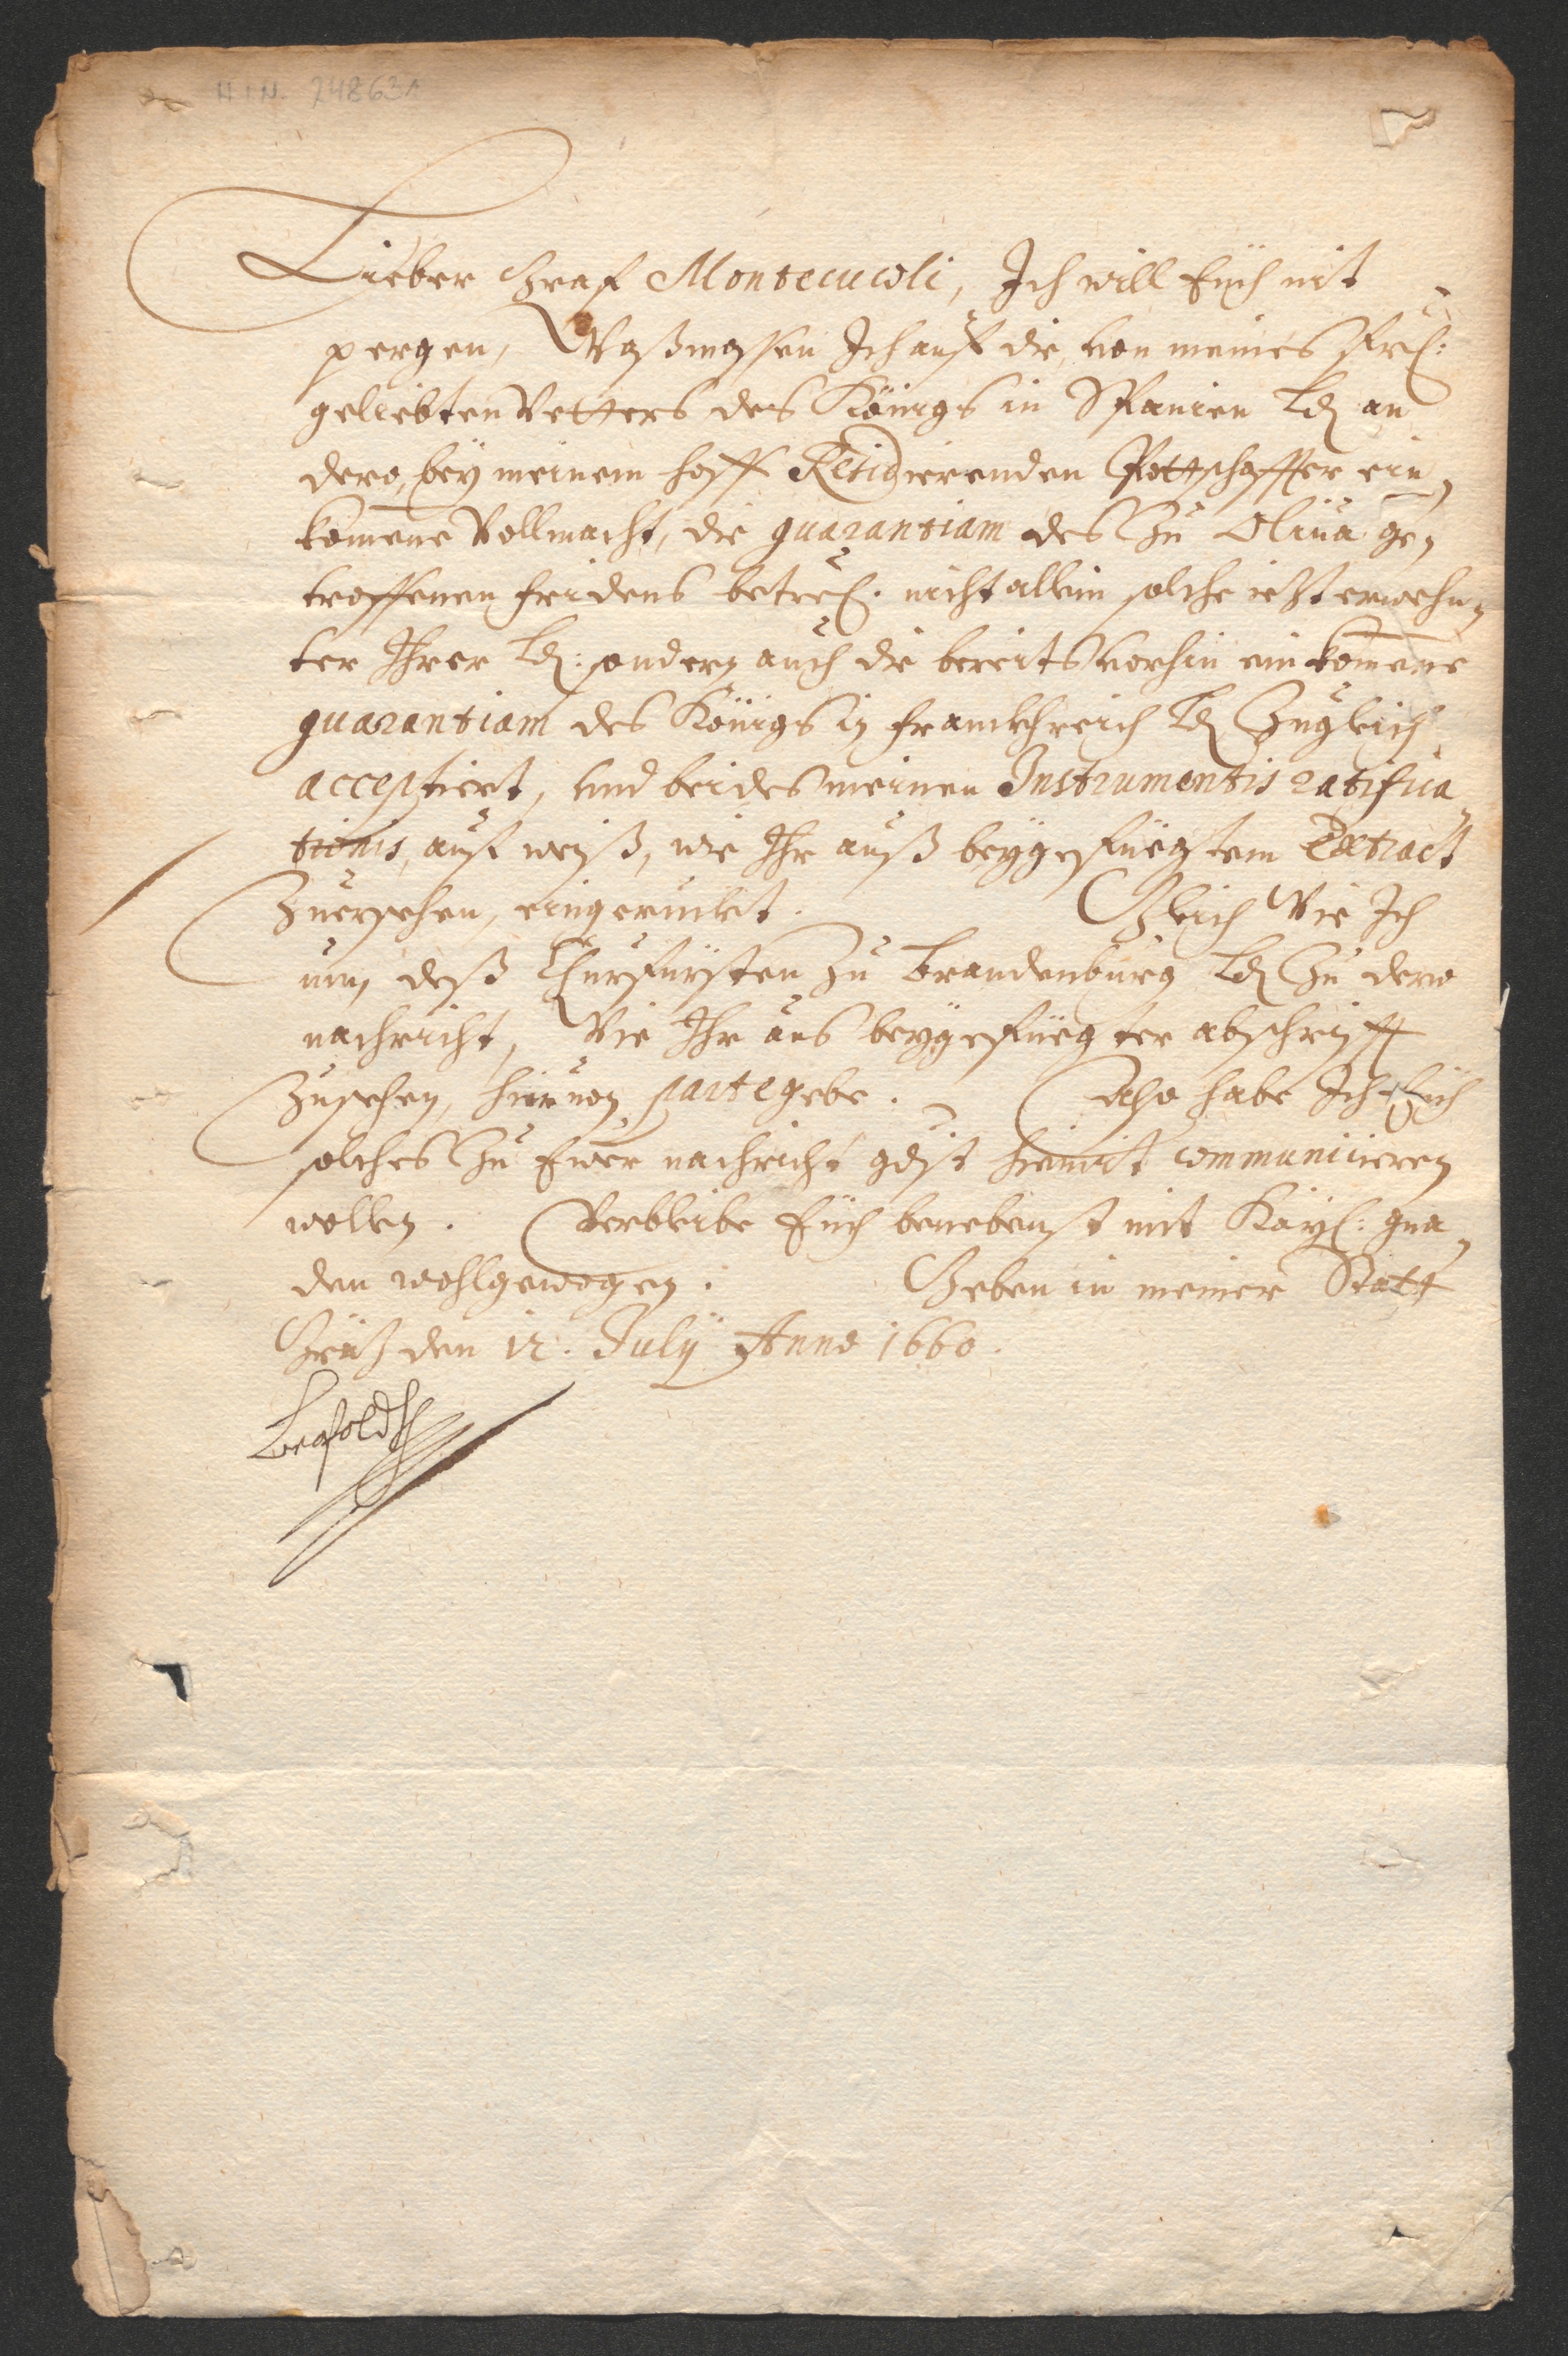 H.I.N. 248631
Lieber Graf Montecucoli, Ich will Euch nit
pergen, Waßmassen Ich auf die, von meines frl:
geliebten Vetters des Königs in Spanien Ld an
dero, bey meinem hoff Residierenden Pottschaffter ein,
komene Vollmacht, die guarantiam des Zu Oliua ge,
troffenen fridens betreff. nicht allein solche iezt erwehn,
ter Ihrer Ld: sondern auch die bereits vorhin einkomene
guarantiam des Königs in Franckhreich Ld Zugleich
acceptiert, vnd beides meinen Instrumentis ratifica,
tionis, auf weiß, wie Ihr auß beygefüegtem Extract
Zuersehen, eingeruckt. Gleich Wie Ich
nun, deß Churfürsten Zu Brandenburg Ld Zu dero
nachricht, Wie Ihr aus beygefüegter abschrifft
Zusehen, hieruon parte gebe. Also habe Ich Euch
solches Zu Ewer nachricht gdist hiemit communicieren
wollen. Verbleibe Euch benebenst mit Kayl: gna,
den wohlgewogen. Geben in meiner Statt
Gräz den 12. July Anno 1660.
Leopoldt